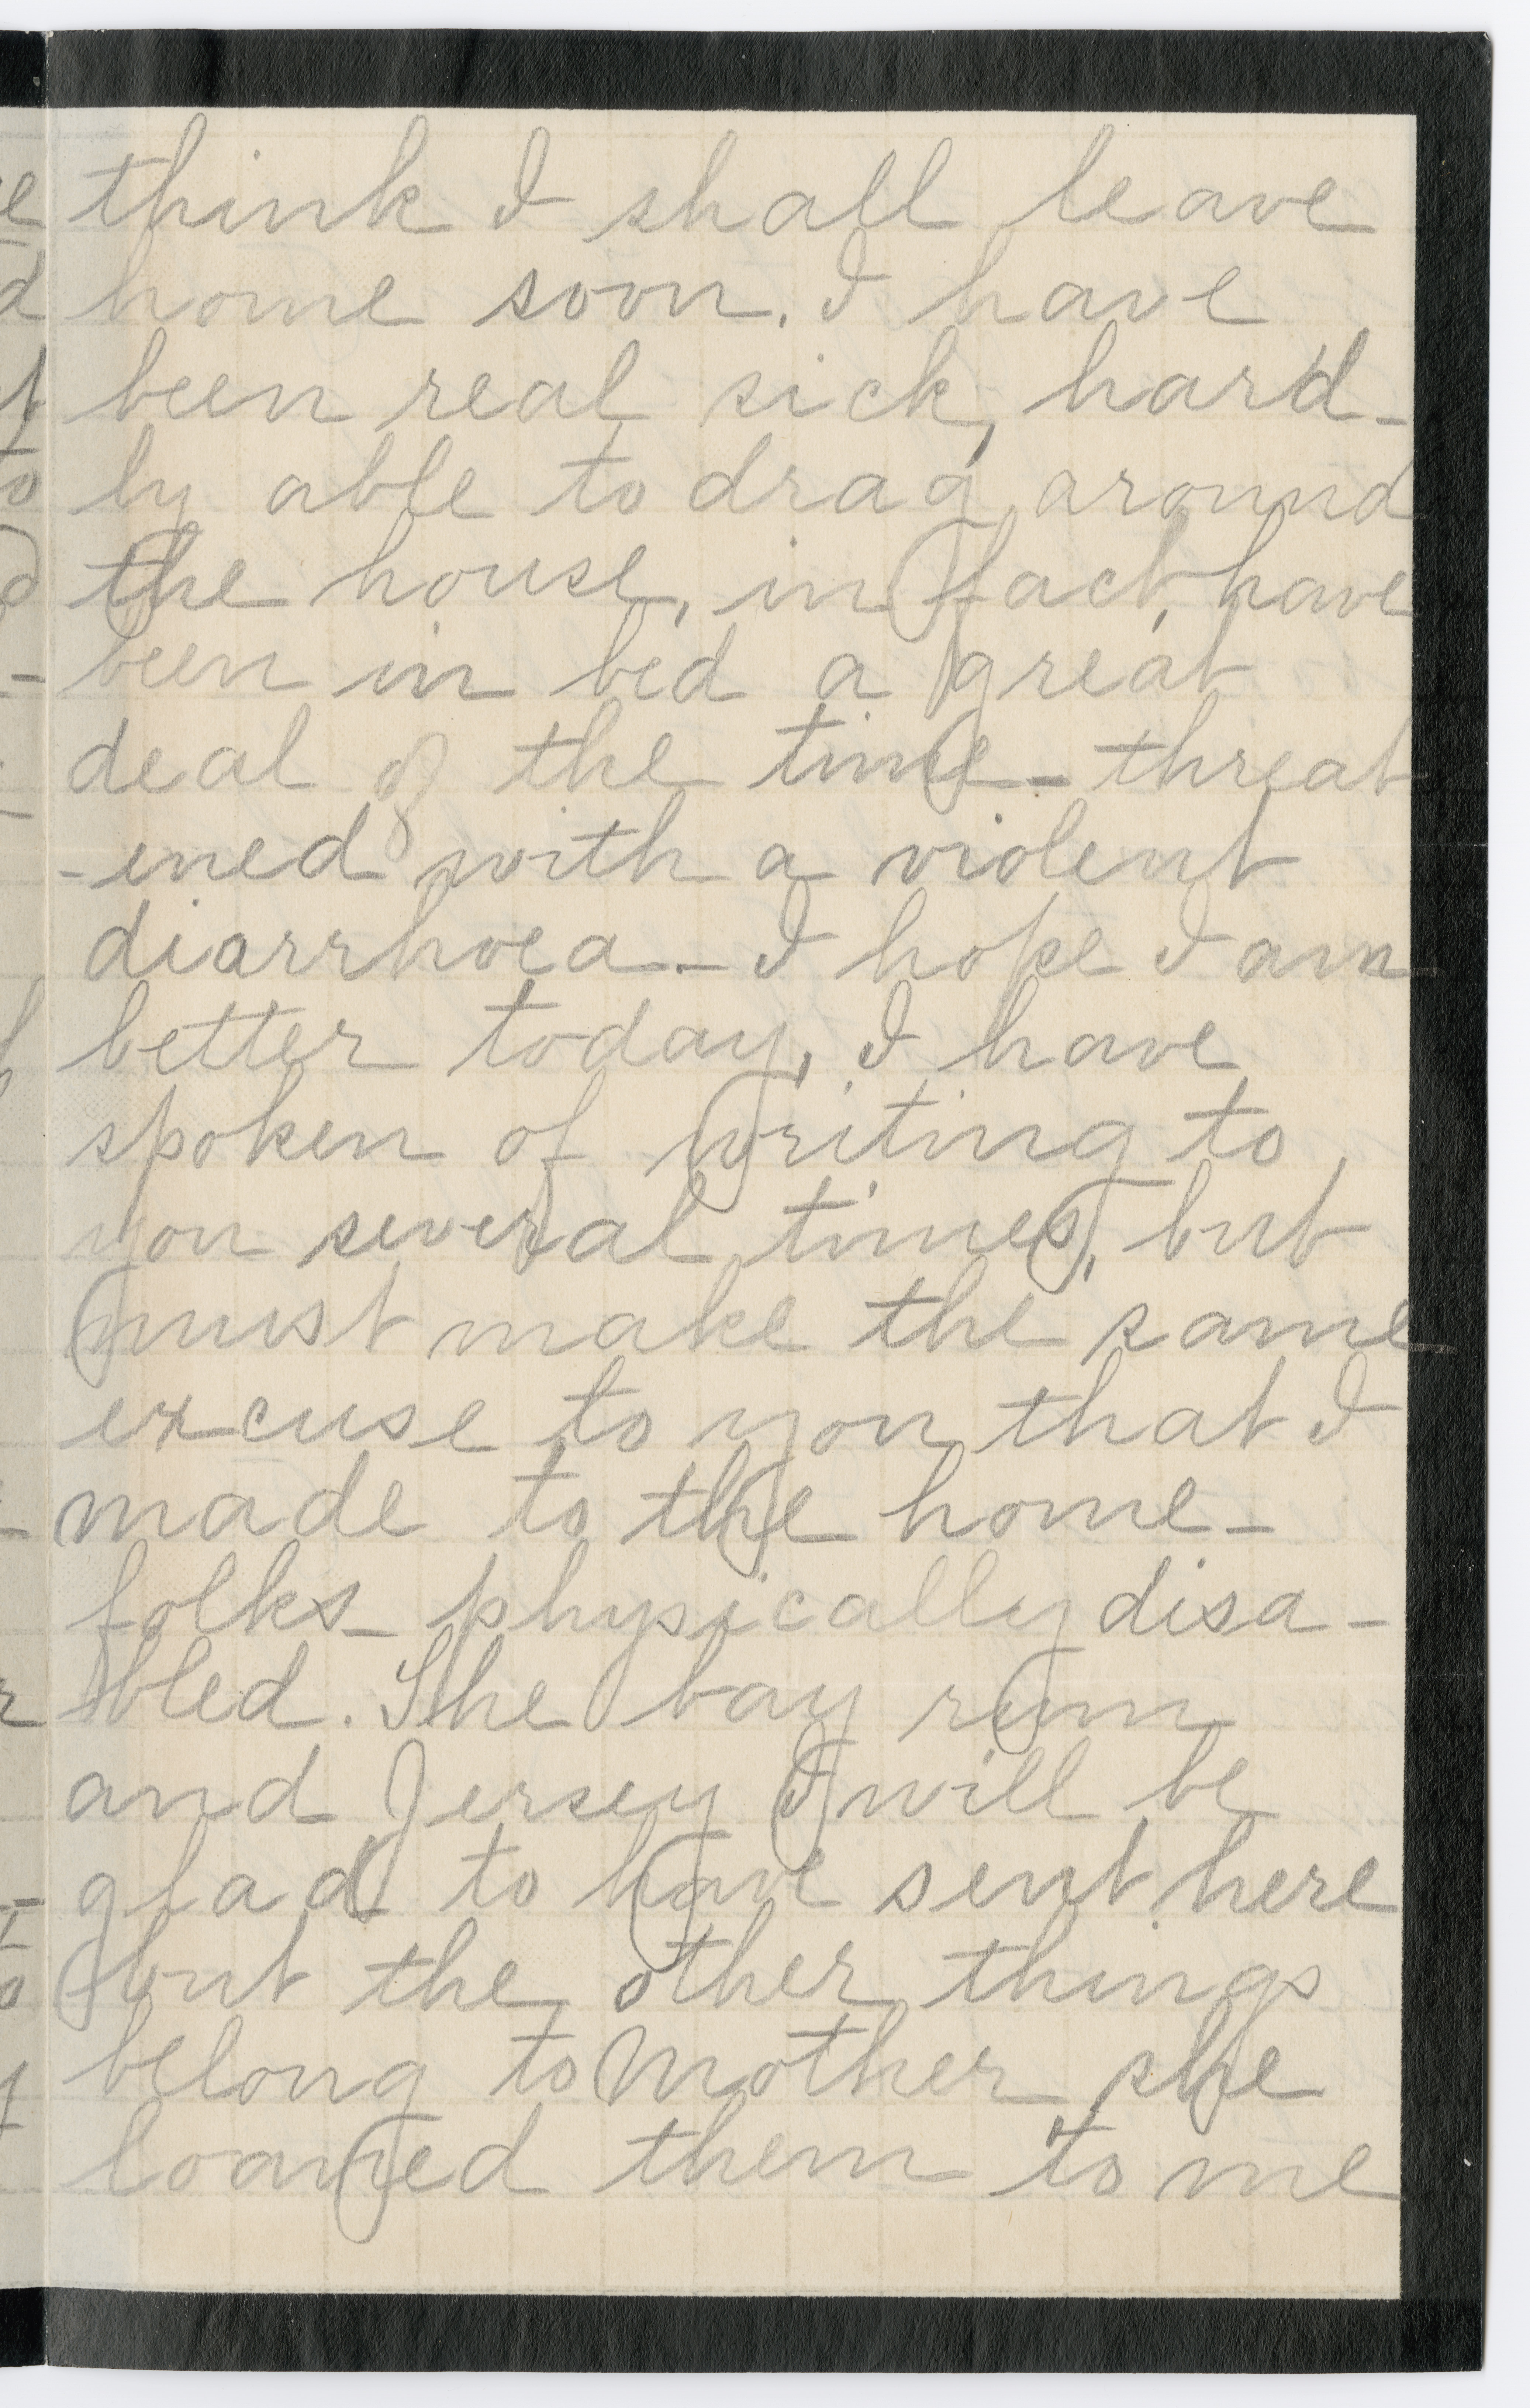 think I shall leave
home soon. I have
been real sick, hard-
ly able to drag around
the house, in fact, have
been in bed a great
deal of the time - threat
-ened with a violent
diarrhoea - I hope I am
better today, I have
spoken of writing to
you several times, but
must make the same
excuse to you that I
made to the home-
folks - physically disa-
bled. The bay rum
and Jersey I will be
glad to have sent here
but the other things
belong to Mother she
loaned them to me